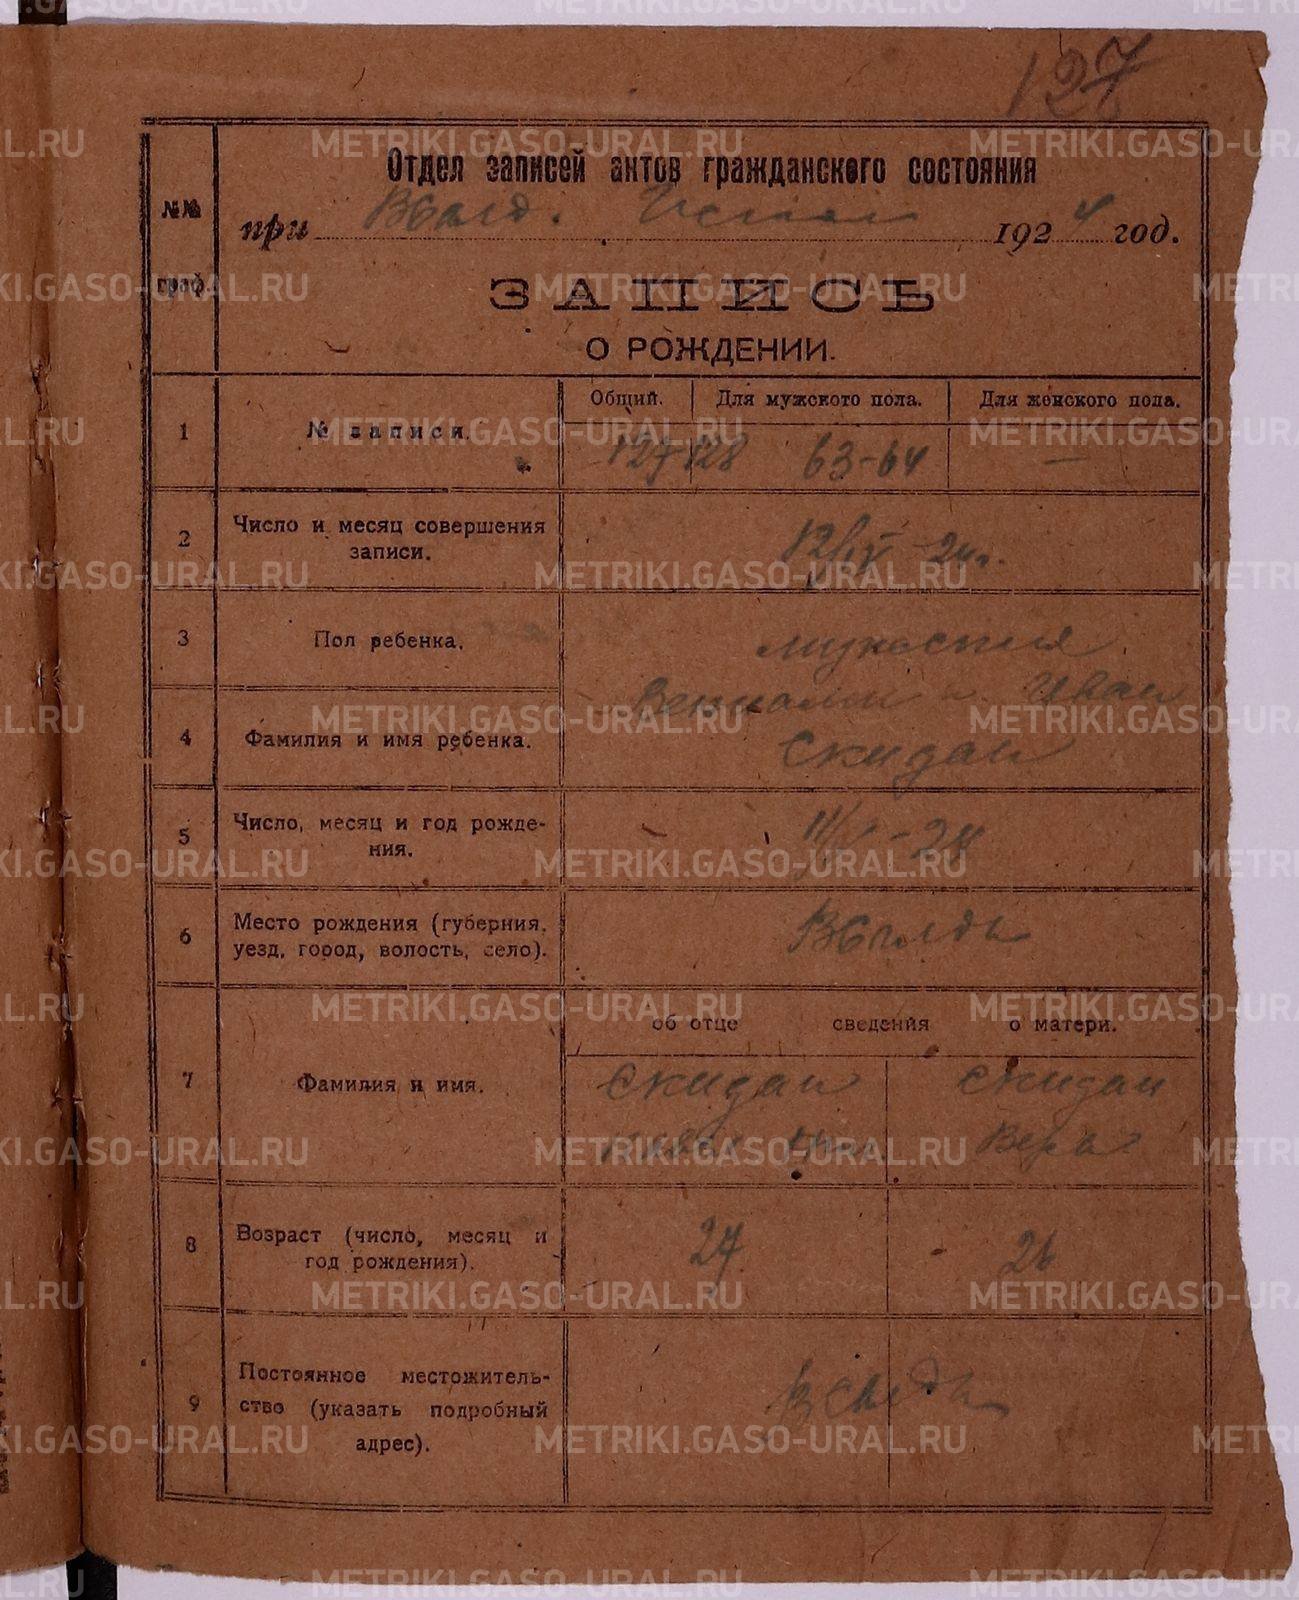 127
Отдел записей актов гражданского состояния
№№
при 1924 год.
граф.
ЗАПИСЬ
О РОЖДЕНИИ.
Общий. Для мужского пола. Для женского пола.
1 № записи. 127 128 63-64 —
2 Число и месяц совершения
записи. 12/IX-24 г.
3 Пол ребенка. мужеския
Вениамин и Иван
4 Фамилия и имя ребенка. Скидан
5 Число, месяц и год рожде-
ния.
6 Место рождения (губерния,
уезд, город, волость, село).
об отце сведения о матери.
Скидан Скидан
7 Фамилия и имя.
Вера
8 Возраст (число, месяц и
год рождения). 27 26
9 Постоянное местожитель-
ство (указать подробный
адрес).
METRIKI.GASO-URAL.RU